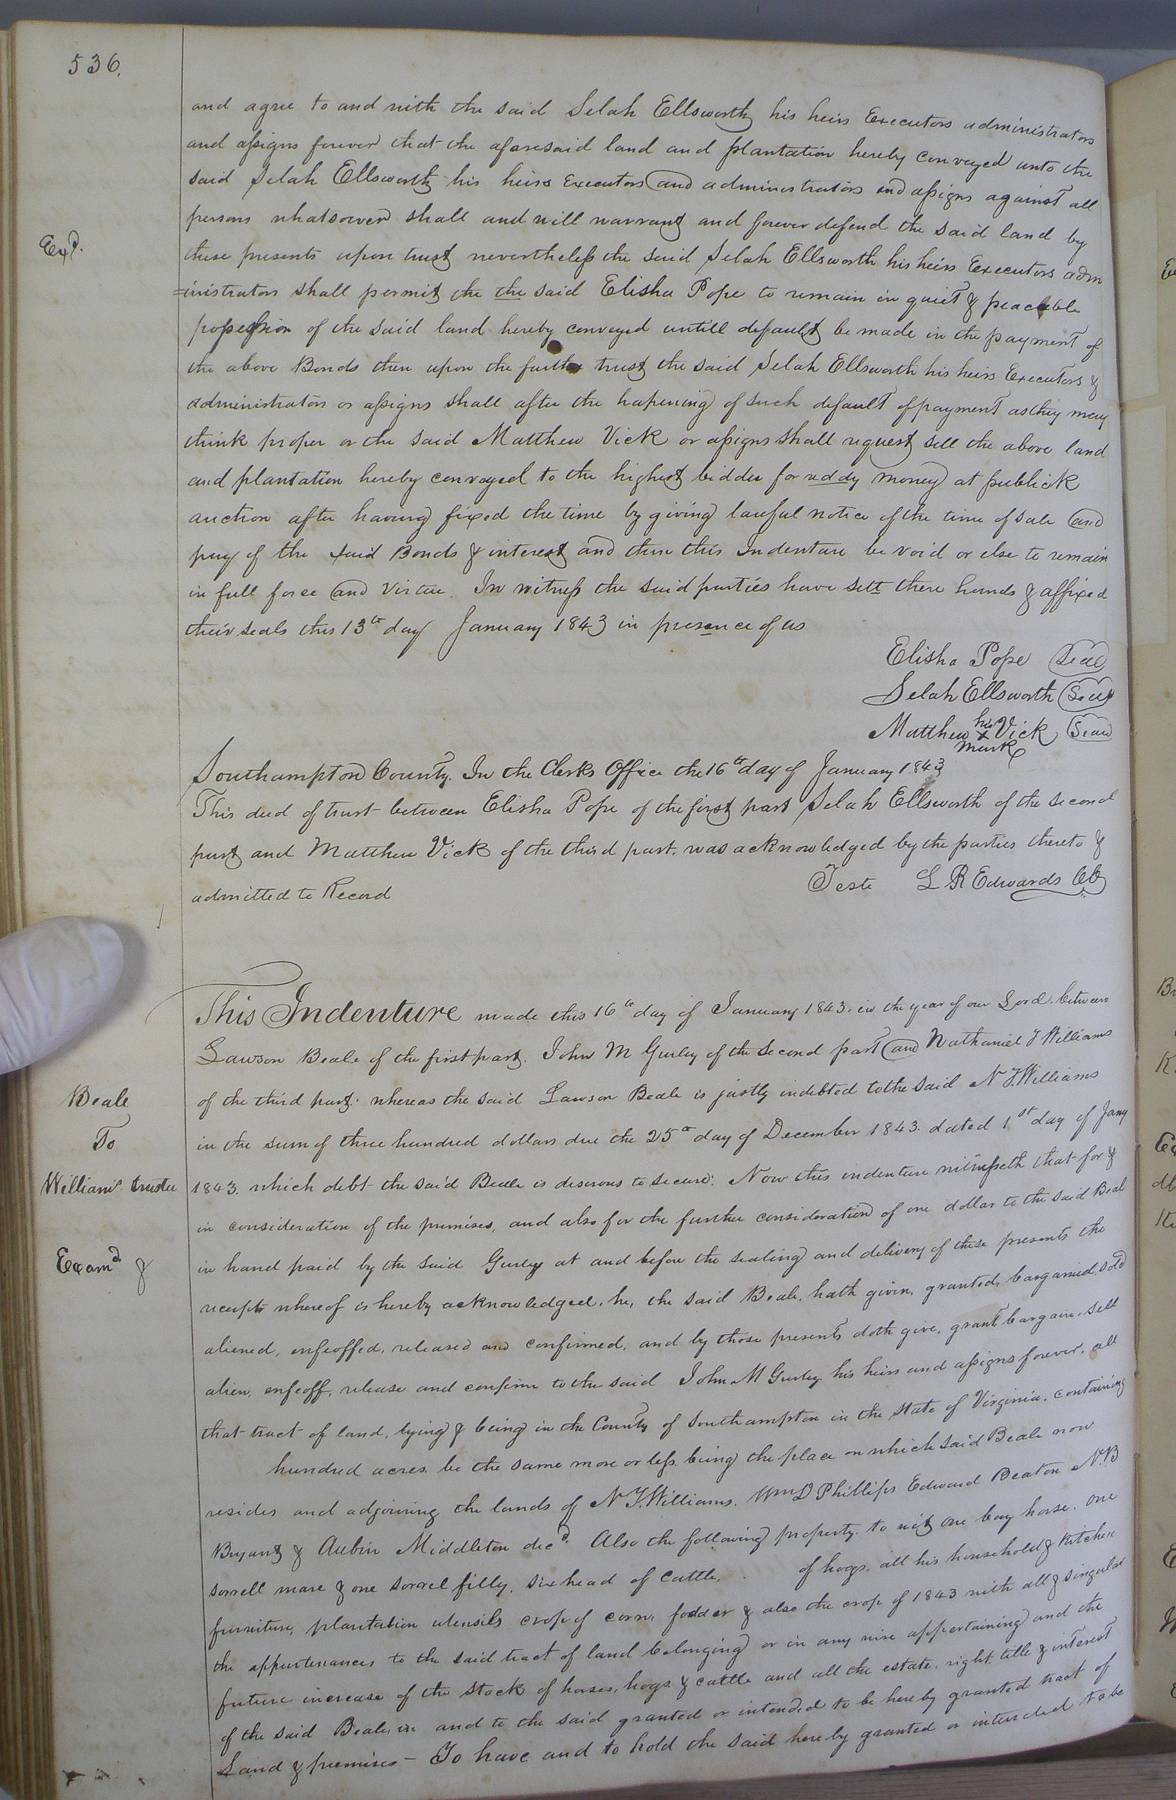 536.
and agree to and with the said Selah Ellsworth his heirs Executors administrators
and assigns forever that the aforesaid land and plantation hereby conveyed unto the
said Selah Ellsworth his heirs Executors and administrators and assigns against all
persons whatsoever shall and will warrant and forever defend the said land by
Exd.
these presents upon trust nevertheless the said Selah Ellsworth his heirs Executors adm
=inistrators shall permit the the said Elisha Pope to remain in quiet & peaceble
possession of the said land hereby conveyed untill default be made in the payment of
the above Bonds then upon the further trust the said Selah Ellsworth his heirs Executors &
administrators or assigns shall after the hapening of such default of payment as they may
think proper or the said Matthew Vick or assigns shall request sell the above land
and plantation hereby conveyed to the highest bidder for reddy money at publick
auction after having fixed the time by giving lawful notice of the time of sale and
pay of the said Bonds & interest and then this Indenture be void or else to remain
in full force and virtue. In witness the said parties have sett there hands & affixed
their seals this 13th day January 1843 in presence of us
Elisha Pope Seal
Selah Ellsworth Seal
Matthew his X mark Vick Seal
Southampton County. In the Clerks Office the 16th day of January 1843
This deed of trust between Elisha Pope of the first part Selah Ellsworth of the second
part and Matthew Vick of the third part. was acknowledged by the parties thereto &
admitted to Record Teste L R Edwards CC
This Indenture made this 16th day of January 1843. in the year of our Lord. between
Lawson Beale of the first part. John M Gurley of the second part and Nathaniel T Williams
Beale
of the third part. whereas the said Lawson Beale is justly indebted to the said N T. Williams
To
in the sum of three hundred dollars due the 25th day of December 1843. dated 1st day of Jany
Williams trustee
1843. which debt the said Beale is desirous to secure. Now this indenture witnesseth that for &
in consideration of the premises, and also for the further consideration of one dollar to the said Beal
Examd &
in hand paid by the said Gurley at and before the sealing and delivery of these presents the
receipt whereof is hereby acknowledged. he, the said Beale, hath given, granted, bargained. sold
aliened, enfeoffed, released and confirmed, and by those presents doth give, grant bargain. sell
alien, enfeoff, release and confirm to the said John M Gurley his heirs and assigns forever. all
that tract of land, lying & being in the County of Southampton in the State of Virginia. containing
hundred acres. be the same more or less. being the place on which said Beale now
resides and adjoining the lands of N T. Williams. Wm D Phillips Edward Beaton N. B
Bryant & Aubin Middleton decd. Also the following property. to wit, one bay horse. one
sorrell mare & one sorrel filly. six head of cattle, . of hogs. all his household & kitchen
furniture, plantation utensils crop of corn, fodder & also the crop of 1843 with all & singular
the appurtenances to the said tract of land belonging or in any wise appertaining and the
future increase of the stock of horses, hogs & cattle and all the estate. right. title & interest
of the said Beale, in and to the said granted or intended to be hereby granted tract of
Land & premises – To have and to hold the said hereby granted or intended to be